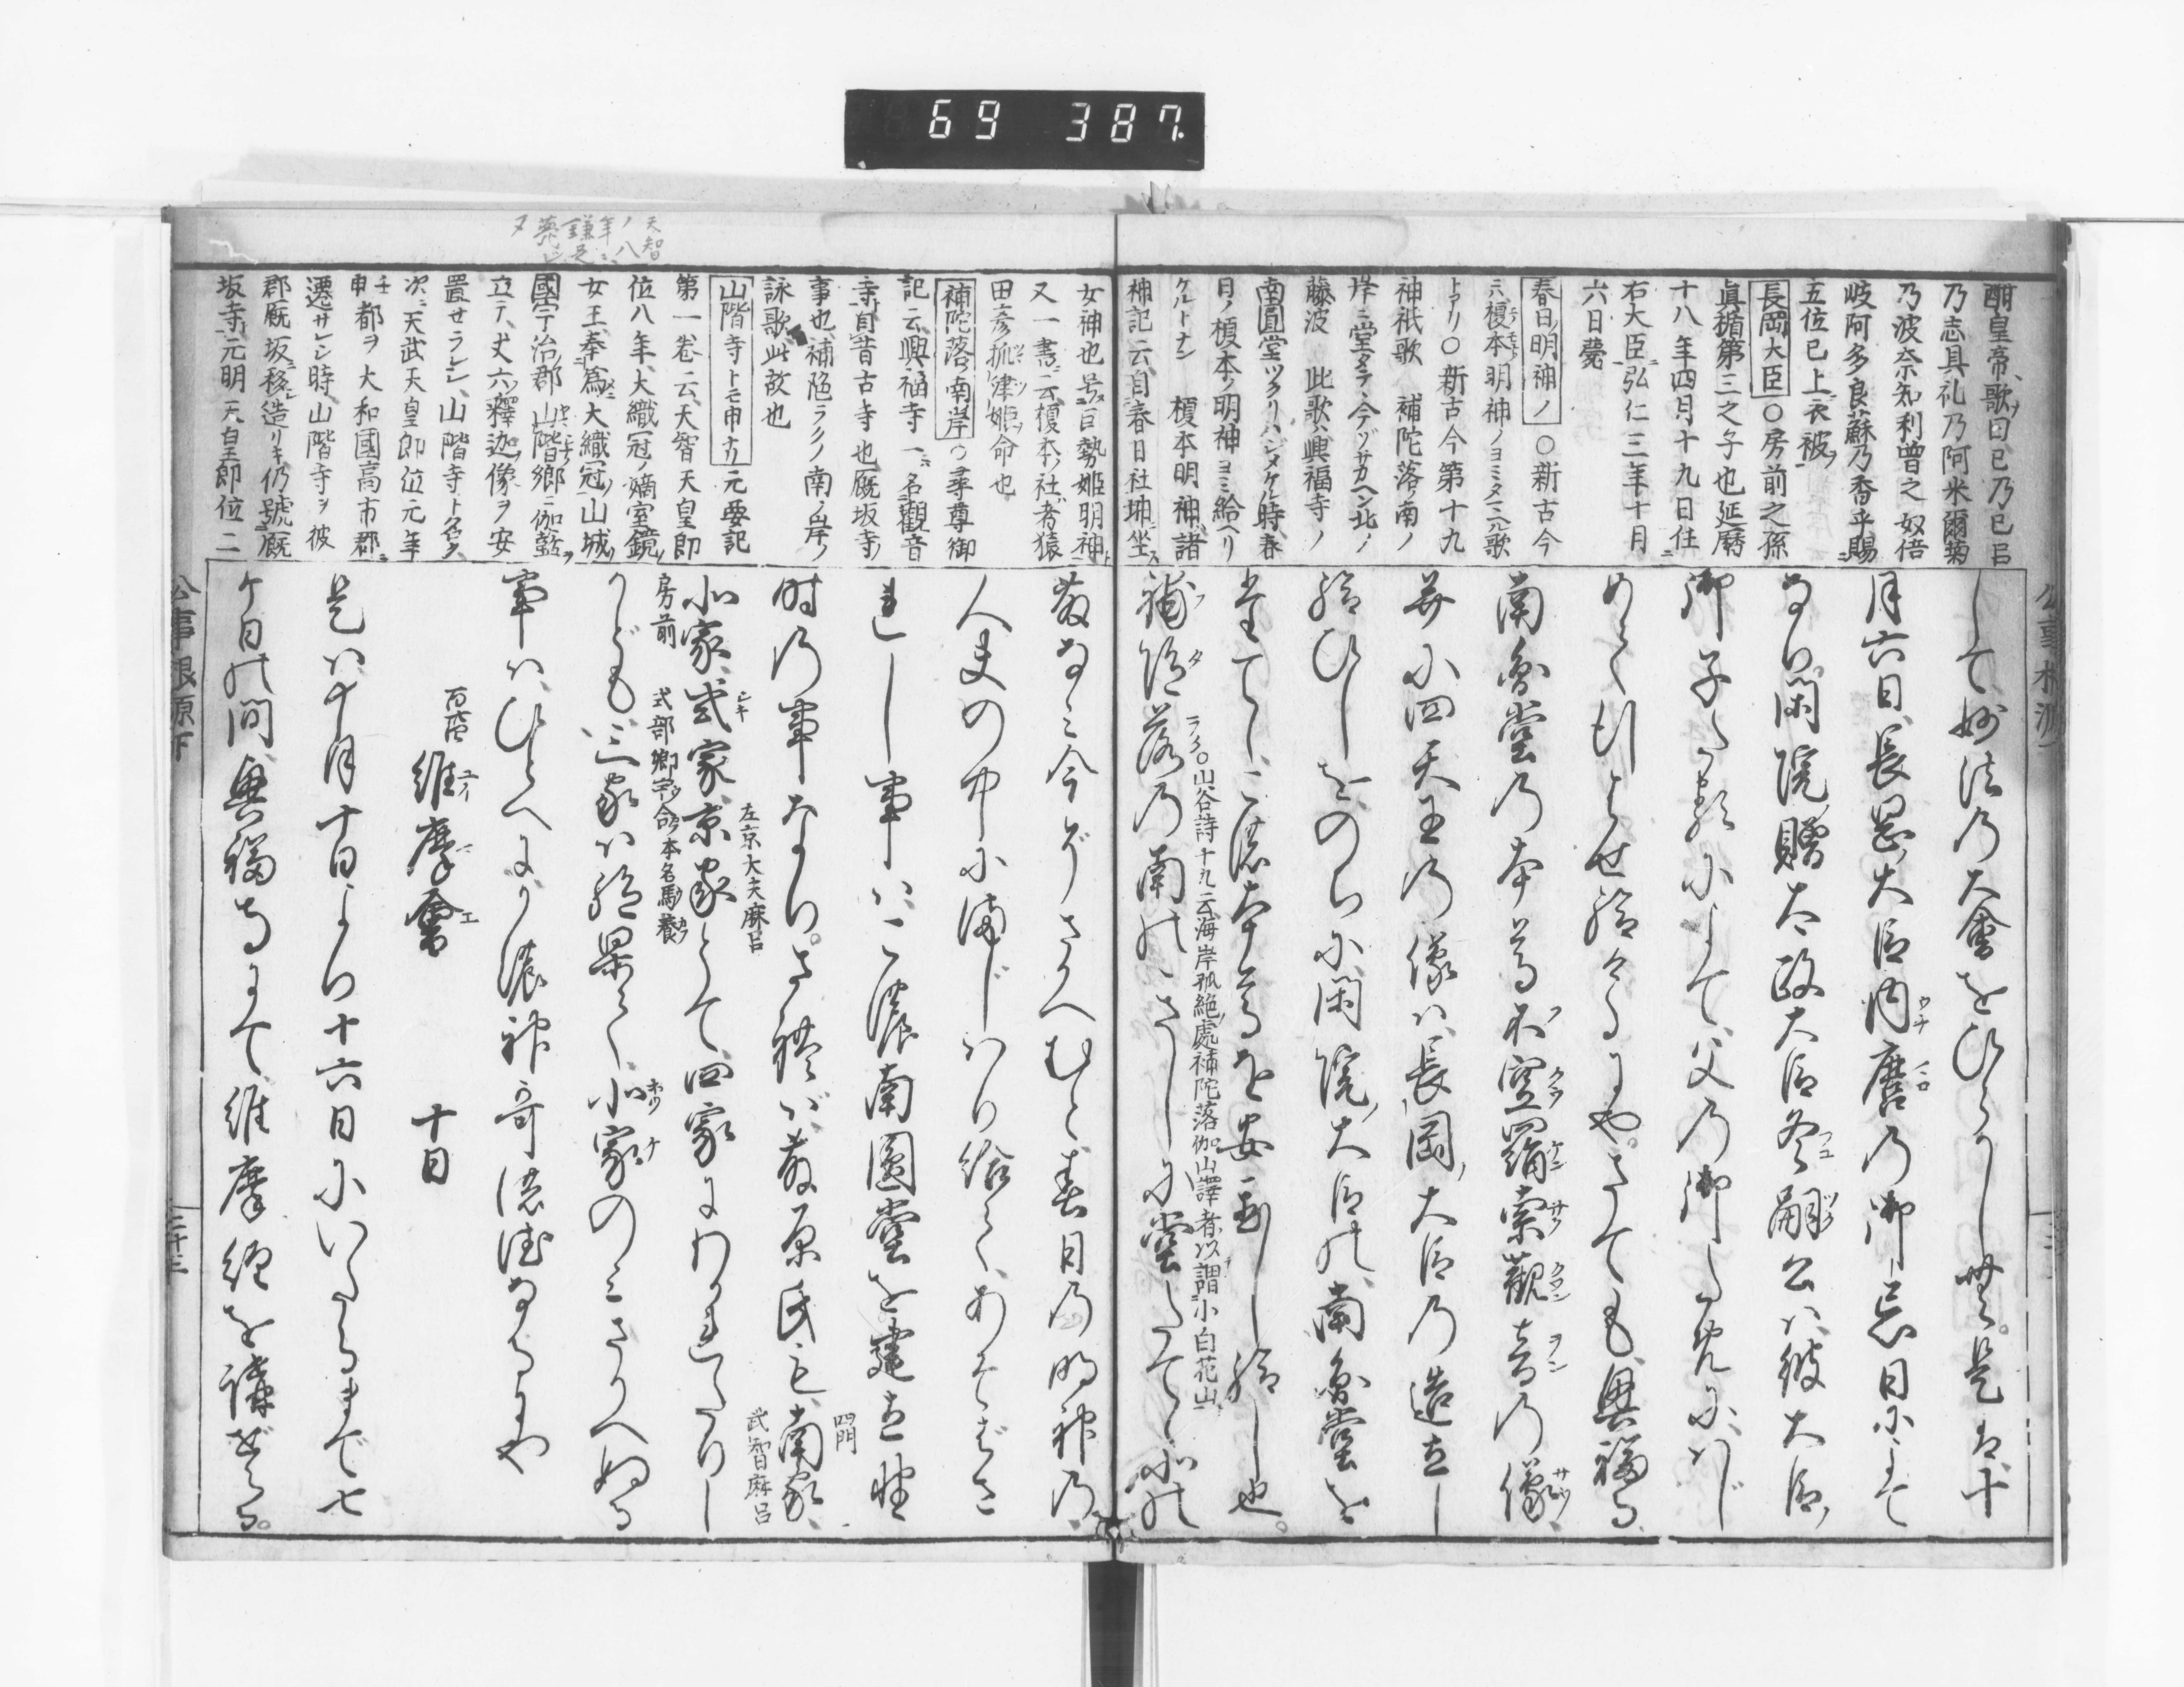 69 387.
酣皇帝歌曰已乃已呂
乃志具礼乃阿米爾菊
乃波奈知利曽之奴倍
岐阿多良蘇乃香乎賜
五位已上衣被
長岡大臣○房前之孫
眞楯第三之子也延暦
十八年四月十九日任
右大臣弘仁三年十月
六日薨
春日ノ明神ノ○新古今
ニハ榎本明神ノヨミタル歌
トアリ○新古今第十九
神祇歌 補陀落ノ南ノ
岸ニ堂タテヽ今ゾサカヘン北ノ
藤波 此歌ハ興福寺ノ
南圓堂ツクリハジメケル時春
日ノ榎本ノ明神ヨミ給ヘリ
ケルトナン 榎本明神諸
神記云自春日社坤ニ坐ス
して妙法乃大會をひらかし無。是は十
月六日、長岡大臣内麿乃御忌日にして
なり。閑院贈太政大臣冬嗣公ハ彼大臣ノ
御子たるによて、父乃御ために、はじ
めておこなはせ給けるにや。さても興福寺
南圓堂乃本尊不空羂索觀音乃像、
并に四天王乃像ハ、長岡ノ大臣乃造立し
給ひしを、のちに閑院ノ大臣の、南圓堂を
たてゝ、この本尊を安置し給し也。
補陀落乃南の、きしに堂たてゝ、北の
ラク○山谷詩十九云海岸孤絶處補陀落伽山譯者以謂小白花山
女神也号ヲ巨勢姫明神ト
又一書ニ云榎本ノ社ハ者猿
田彦狐津姫ノ命也
補陀落ノ南岸○尋尊御
記云興福寺一ニ名觀音
寺自昔古寺也厩坂寺ノ
事也補陁ラクノ南ノ岸ノ
詠歌此故也
山階寺トモ申ナリ元要記
第一卷ニ云天智天皇即
位八年大織冠ノ嫡室鏡ノ
女王奉爲大織冠山城ノ
國宇治郡山階郷ニ伽藍ヲ
立テ丈六ノ釋迦像ヲ安
置セラレシ山階寺ト名ク
次ニ天武天皇即位元年
壬申都ヲ大和國高市郡ニ
遷サレシ時山階寺ヲ彼
郡厩坂ニ移造リキ仍號厩
坂寺ト元明天皇即位二
藤なミ今ぞさかへむと、春日乃明神乃、
人夫の中に満じハり給て、あそばさ
れし事ハ、この南圓堂を建立せし
時乃事なり。されバ藤原氏も、南家、
四門
武智麻呂
北家、式家、京家とて、四家にわかれたりし
房前 式部卿宇合本名馬養
左京大夫麻呂
かども、三家ハ絶果て、北家のミさかへぬる
事ハ、ひとへにかの神哥徳なるにや
百階 維摩會 十日
是ハ十月十日より十六日にいたるまで七
ケ日の間、興福寺にて維摩經を講ぜらる。
公事根源下
二十三